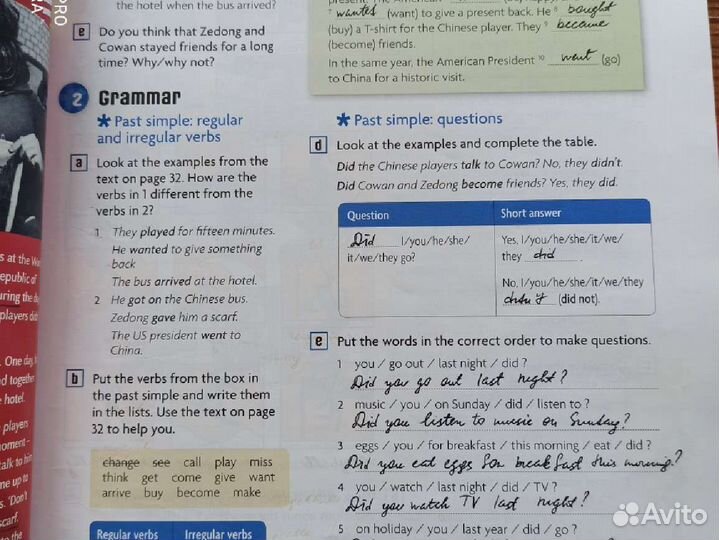 the hotel when the bus arrived?
e Do you think that Zedong and
Cowan stayed friends for a long
time? Why/why not?
2 Grammar
* Past simple: regular
and irregular verbs
a Look at the examples from the
text on page 32. How are the
verbs in 1 different from the
verbs in 2?
1 They played for fifteen minutes.
He wanted to give something
back
The bus arrived at the hotel.
2 He got on the Chinese bus.
Zedong gave him a scarf.
The US president went to
China.
b Put the verbs from the box in
the past simple and write them
in the lists. Use the text on page
32 to help you.
change see call play miss
think get come give want
arrive buy become make
Regular verbs Irregular verbs
7 wantes (want) to give a present back. He 8 bought
(buy) a T-shirt for the Chinese player. They 9 became
(become) friends.
In the same year, the American President 10 went (go)
to China for a historic visit.
* Past simple: questions
d Look at the examples and complete the table.
Did the Chinese players talk to Cowan? No, they didn't.
Did Cowan and Zedong become friends? Yes, they did.
Question Short answer
Did I/you/he/she/
it/we/they go?
Yes, I/you/he/she/it/we/
they did.
No, I/you/he/she/it/we/they
didn't (did not).
e Put the words in the correct order to make questions.
1 you / go out / last night / did ?
Did you go out last night?
2 music / you / on Sunday / did / listen to ?
Did you listen to music on Sunday?
3 eggs / you / for breakfast / this morning / eat / did ?
Did you eat eggs for breakfast this morning?
4 you / watch / last night / did / TV ?
Did you watch TV last night?
5 on holiday / you / last year / did / go ?
s at the
epublic of
uring the
players
One day,
d together
hotel.
players
moment –
talk to him
me up to
s. 'Don't
scarf.
to the
PRO
Avito